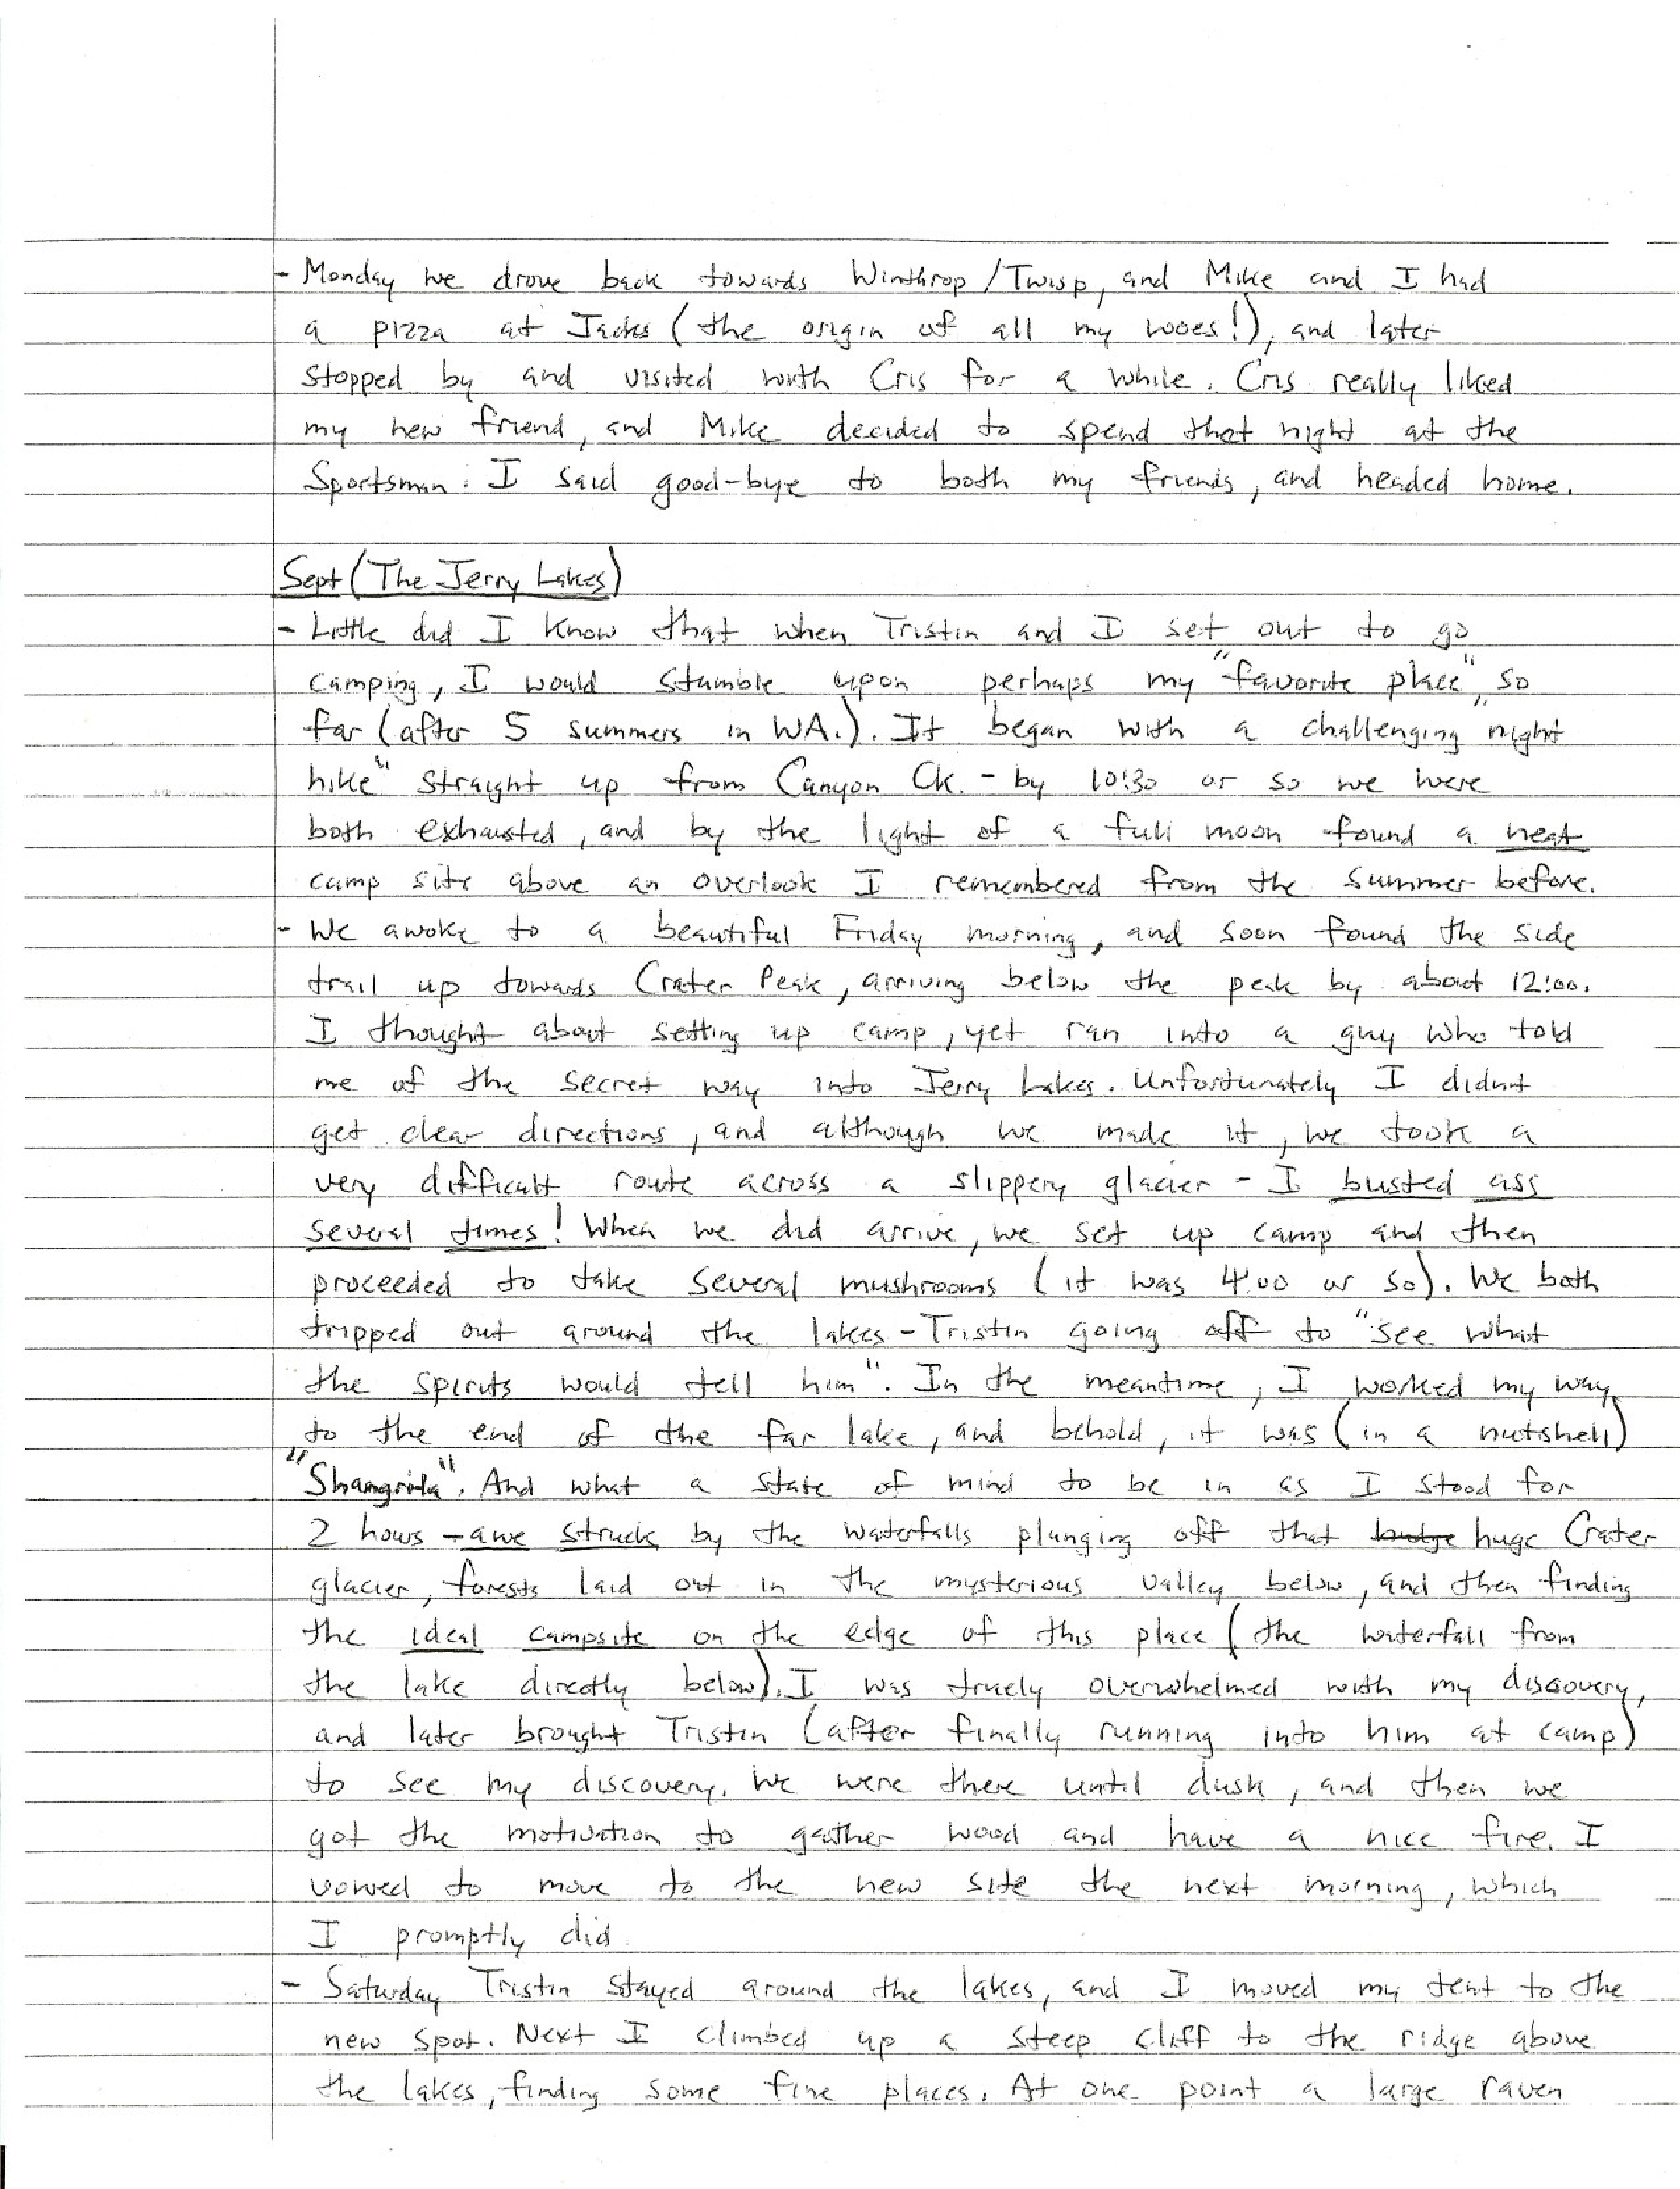 - Monday we drove back towards Winthrop/Twisp, and Mike and I had
a pizza at Jacks (the origin of all my woes!), and later
stopped by and visited with Cris for a while. Cris really liked
my new friend, and Mike decided to spend that night at the
Sportsman. I said good-bye to both my friends, and headed home.
Sept (The Jerry Lakes)
- Little did I know that when Tristin and I set out to go
camping, I would stumble upon perhaps my "favorite place", so
far (after 5 summers in WA.). It began with a challenging "night
hike" straight up from Canyon Ck. - by 10:30 or so we were
both exhausted, and by the light of a full moon found a neat
camp site above an overlook I remembered from the summer before.
- We awoke to a beautiful Friday morning, and soon found the side
trail up towards Crater Peak, arriving below the peak by about 12:00.
I thought about setting up camp, yet ran into a guy who told
me of the secret way into Jerry Lakes. Unfortunately I didnt
get clear directions, and although we made it, we took a
very difficult route across a slippery glacier - I busted ass
several times! When we did arrive, we set up camp and then
proceeded to take several mushrooms (it was 4:00 or so). We both
tripped out around the lakes - Tristin going off to "see what
the spirits would tell him". In the meantime, I worked my way
to the end of the far lake, and behold, it was (in a nutshell)
"Shangrila". And what a state of mind to be in as I stood for
2 hours - awe struck by the waterfalls plunging off that huge Crater
glacier, forests laid out in the mysterious valley below, and then finding
the ideal campsite on the edge of this place (the waterfall from
the lake directly below). I was truely overwhelmed with my discovery,
and later brought Tristin (after finally running into him at camp)
to see my discovery. We were there until dusk, and then we
got the motivation to gather wood and have a nice fire. I
vowed to move to the new site the next morning, which
I promptly did.
- Saturday Tristin stayed around the lakes, and I moved my tent to the
new spot. Next I climbed up a steep cliff to the ridge above
the lakes, finding some fine places. At one point a large raven